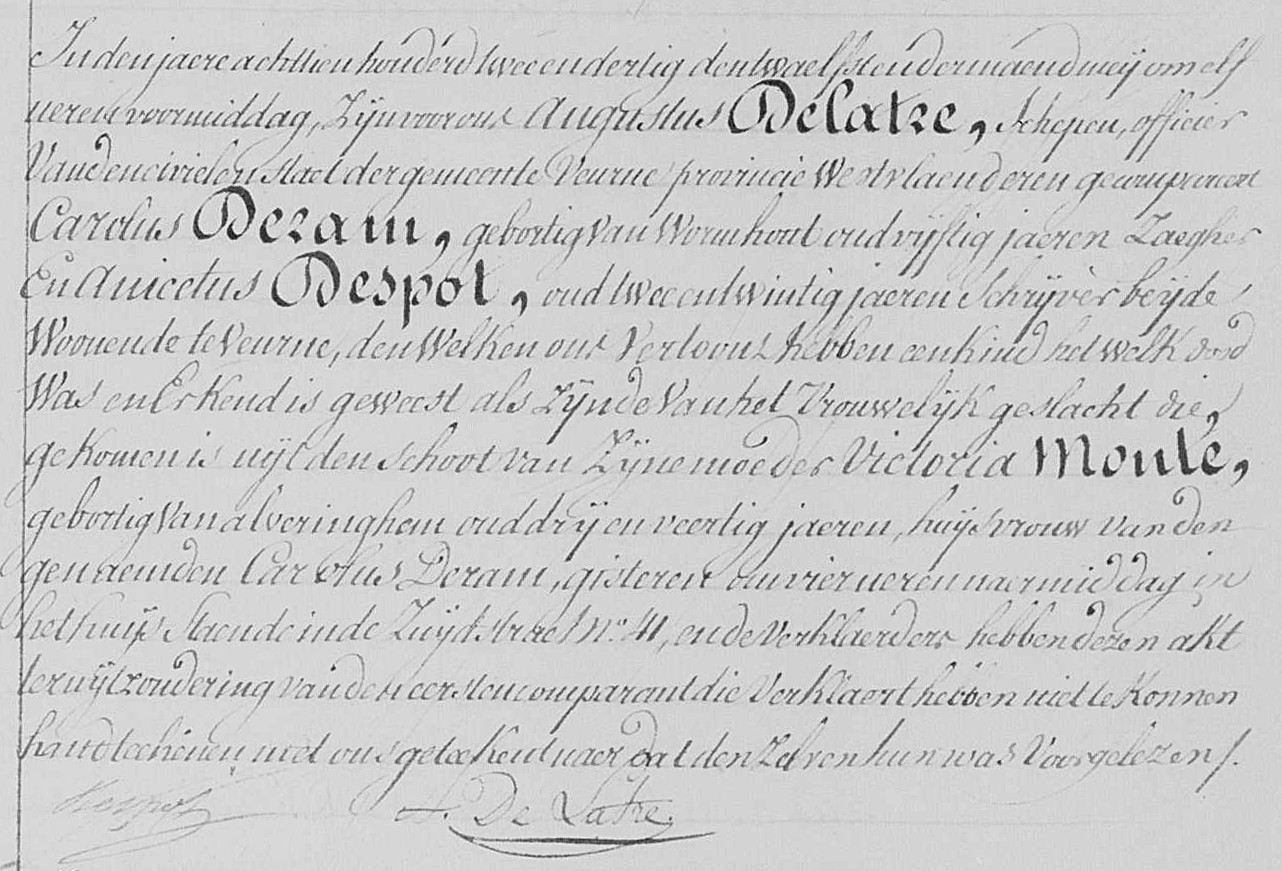 In den jaere achttien honderd twee en dertig den twaelfsten der maend meij om elf
ueren voormiddag, Zijn voor ons Augustus Delatre, schepen, officier
Van den civielen staet der gemeente Veurne provincie Westvlaenderen gecompareert
Carolus Deram, gebortig Van Wormhout oud vijftig jaeren Zaegher
En Anicetus Despot, oud twee entwintig jaeren Schrijver beijde
Woonende te Veurne, den Welken ons Vertoont hebben een kind het welk dood
Was en Erkend is geweest als Zijnde Van het Vrouwelijk geslacht die,
gekomen is uijt den schoot van Zijne moeder Victoria Monte,
gebortig Van alveringhem oud drij en veertig jaeren, huijsvrouw van den
genaemden Carolus Deram, gisteren om vier ueren naermiddag in
het huijs staende in de Zuijdstraet No. 41, en de Verklaerders hebben dezen akt
ter uijtzondering van den eersten comparant die Verklaert hebben niet te Konnen
handteekenen met ons geteekent naer dat den Zelven hun was Voorgelezen /.
Despot A. De Latre.